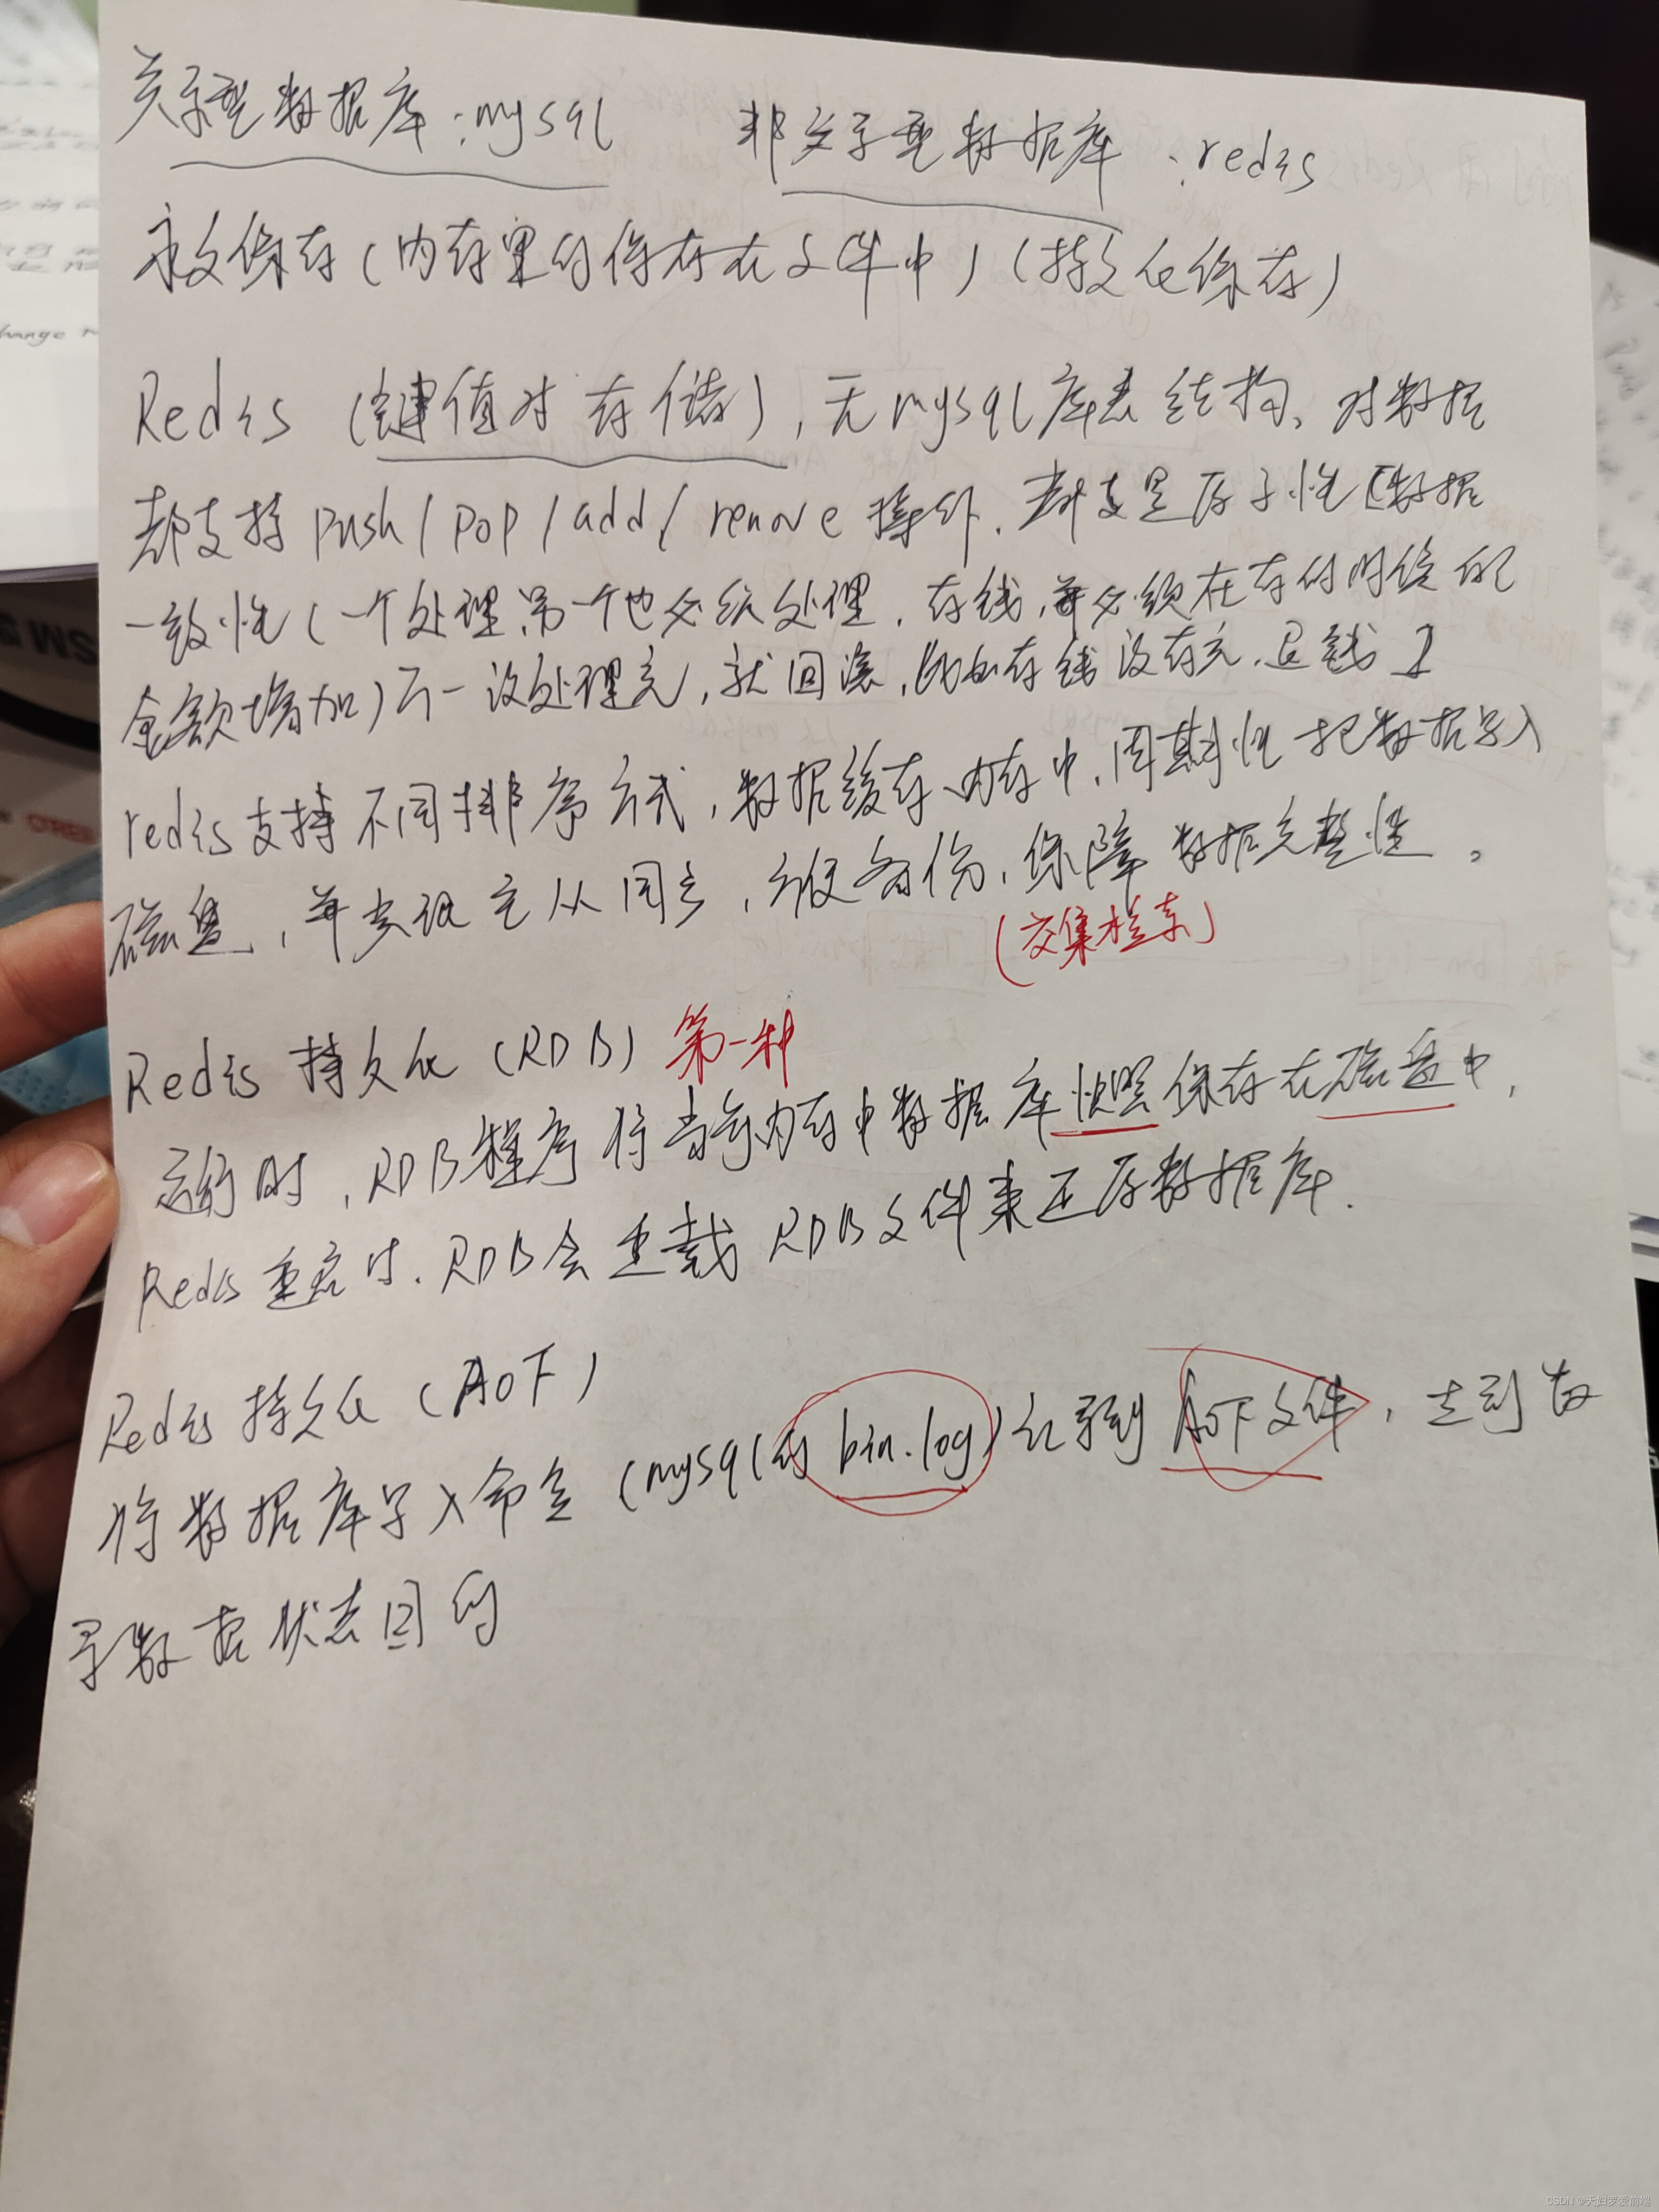 关系型数据库:mysql 非关系型数据库:redis
永久保存(内存里的保存在文件中)(持久化保存)
Redis (键值对存储),无mysql库表结构、对数据
都支持 push/pop/add/remove 操作.都是原子性[数据
一致性(一个处理,另一个也必须处理.存钱,并必须在存的同时给你
金额增加)万一没处理完,就回滚,比如存钱没存完,退钱]
redis支持不同排序方式,数据缓存内存中,周期性把数据写入
磁盘,并实现主从同步,方便备份,保障数据完整性。
(交集检索)
Redis 持久化 (RDB) 第一种
运行时,RDB程序将当前内存中数据库快照保存在磁盘中,
Redis重启时.RDB会重载RDB文件来还原数据库.
Redis 持久化(AOF)
将数据库写入命令(mysql的 bin.log)记录到 AOF文件,达到
录数据状态目的
CSDN @天妇罗爱前端